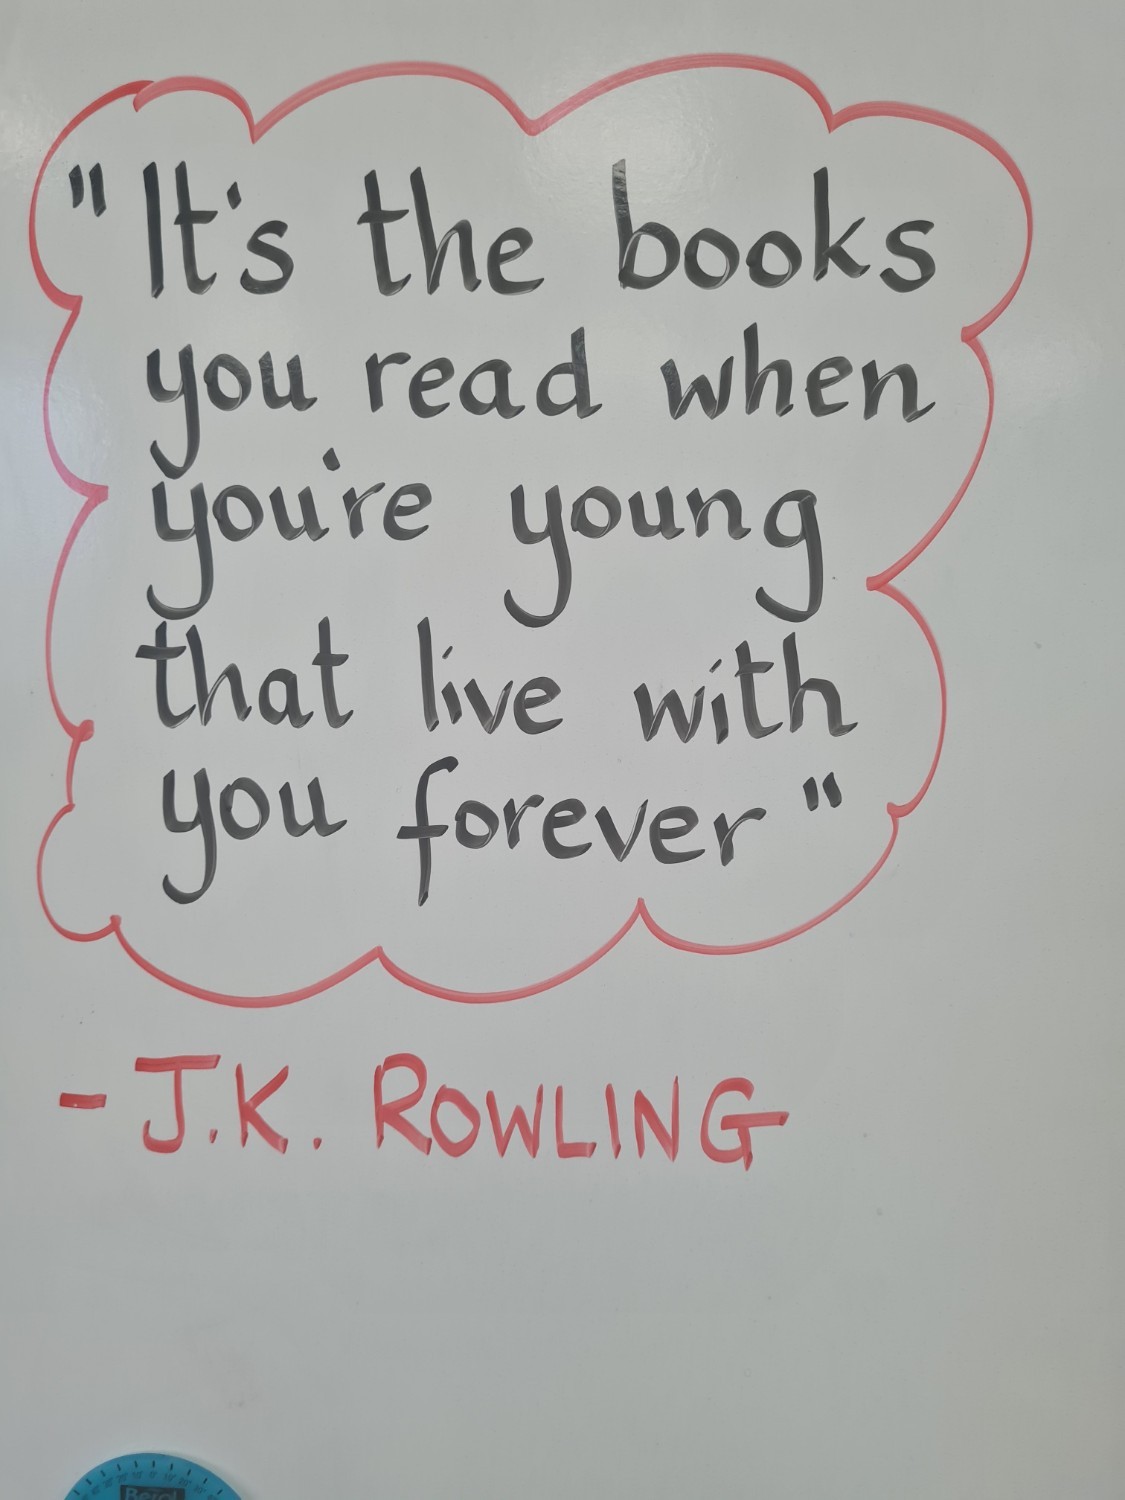 "It's the books
you read when
you're young
that live with
you forever"
- J.K. ROWLING
Berol